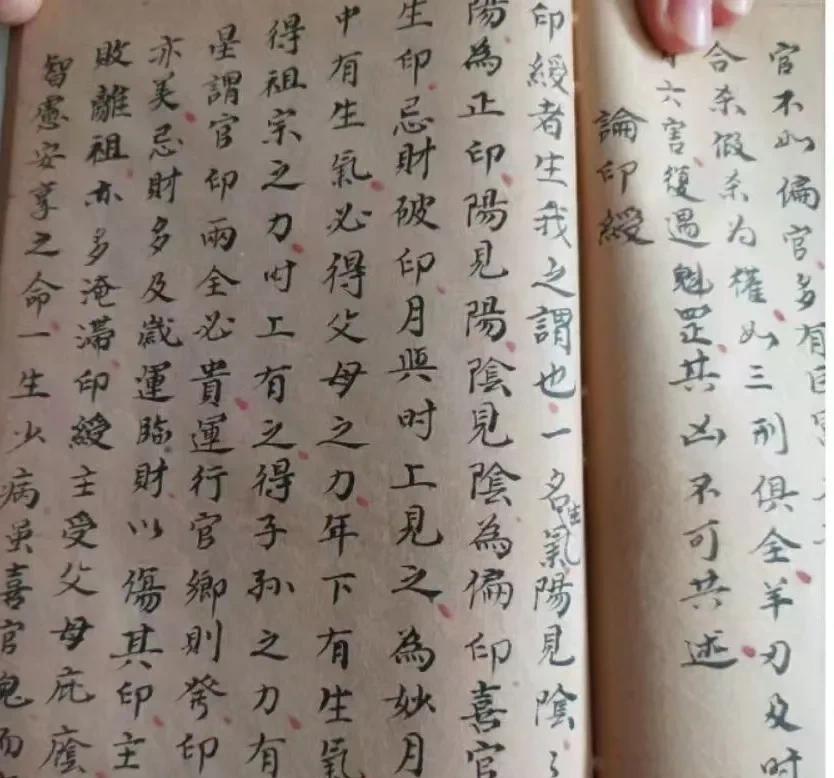 官不如偏官多有
合杀假杀为權如三刑俱全羊刃及时
六害復遇魁罡其凶不可共述
論印綬
印綬者生我之謂也一名生氣陽見陰々
陽為正印陽見陽陰見陰為偏印喜官
生印忌財破印月與时上見之為妙月
中有生氣必得父母之力年下有生氣
得祖宗之力时上有之得子孙之力有
星謂官印兩全必貴運行官鄉則發印
亦美忌財多及歲運臨財以傷其印主
敗離祖亦多淹滯印綬主受父母庇廕
智慮安享之命一生少病虽喜官鬼而